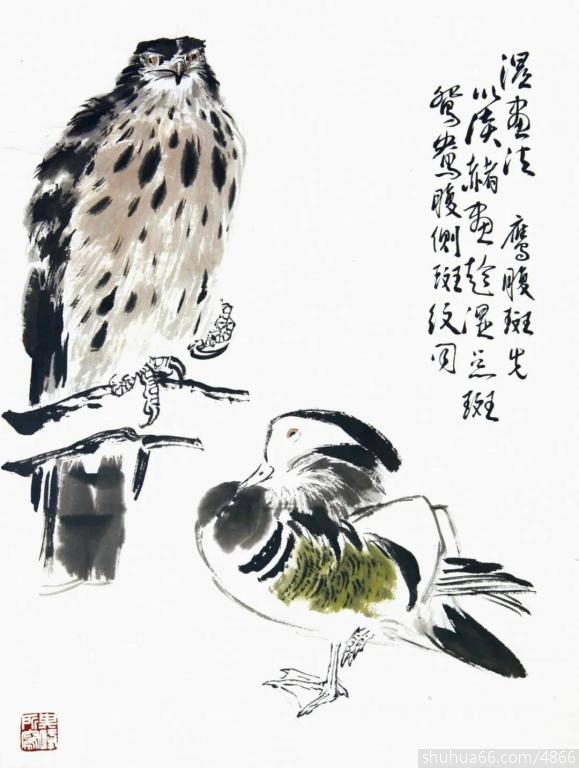 湿画法 鹰腹斑先
以淡赭画趁湿点斑
鸳鸯腹侧斑纹同
shuhua66.com/4866